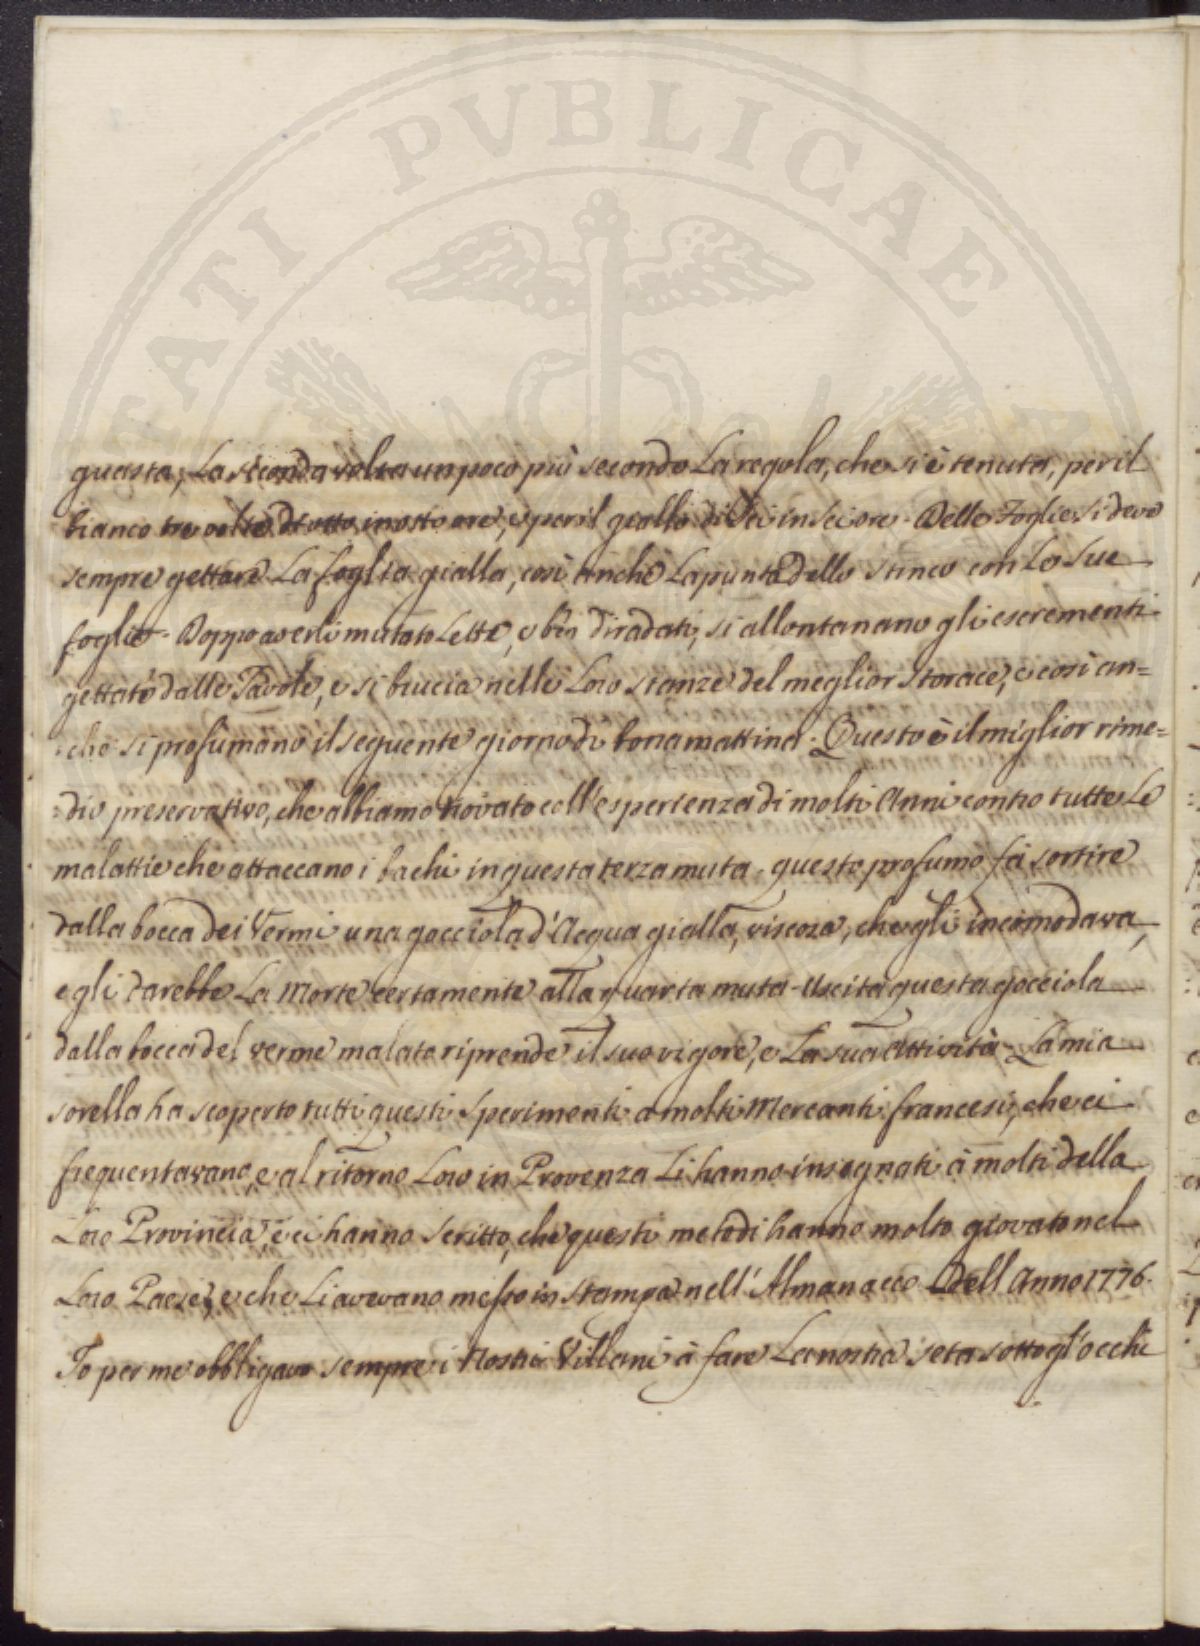 PUBLICAE
guasta; La seconda volta un poco più secondo La regola, che si è tenuta, per il
bianco tre volte di otto in otto ore, e per il giallo di sei in sei ore. Delle Foglie si deve
sempre gettare La foglia gialla, così anche La punta dello stinco con Le Sue
foglie. Doppo averli mutato Lette, e ben diradati, si allontanano gli escrementi
gettati dalle Tavole, e si bruccia nelle Loro stanze del meglior Storace, e così an=
che si profumano il seguente giorno di bona mattina. Questo è il miglior rime=
=dio preservativo, che abbiamo trovato coll'esperienza di molti Anni contro tutte Le
malattie che attaccano i bachi in questa terza muta. questo profumo fà sortire
dalla bocca dei Vermi una gocciola d'Acqua gialla, viscoza, che gli incomodava,
e gli darebbe La Morte certamente alla quarta muta. Uscita questa gocciola
dalla bocca del verme malato riprende il suo vigore, e La sua attività. La mia
sorella ha scoperto tutti questi Sperimenti a molti Mercanti francesi, che ci
frequentavano, e al ritorno Loro in Provenza Li hanno insegnati à molti della
Loro Provincia, e ci hanno Scritto, che questi metodi hanno molto giovato nel
Loro Paese, e che Li avevano messo in stampa nell'Almanacco Dell Anno 1776.
Io per me obbligavo sempre i Nostri Villani à fare La nostra seta sotto gl'occhi